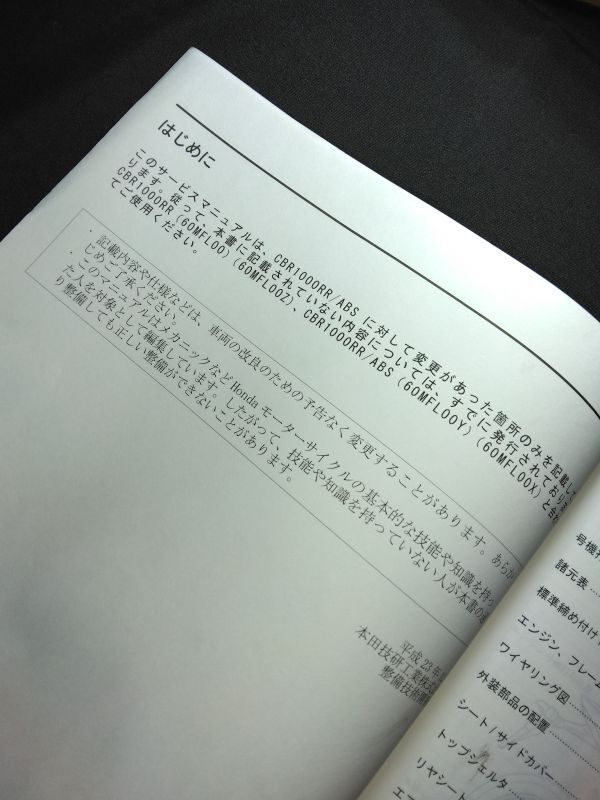 はじめに
このサービスマニュアルは、CBR1000RR/ABS に対して変更があった箇所のみを記載して
ります。従って、本書に記載されていない内容については、すでに発行されており
CBR1000RR (60MFL00) (60MFL00Z)、CBR1000RR/ABS (60MFL00Y) (60MFL00X) と
てご使用ください。
・記載内容や仕様などは、車両の改良のための予告なく変更することがあります。あらか
じめご了承ください。
・このマニュアルはメカニックなど Honda モーターサイクルの基本的な技能や知識を持っ
た人を対象として編集しています。したがって、技能や知識を持っていない人が本書の
り整備しても正しい整備ができないことがあります。
平成 23年
本田技研工業株式
整備技術
号機
諸元表
標準締め付け
エンジン、フレーム
ワイヤリング図
外装部品の配置
シート/サイドカバー
トップシェルタ
リヤシート